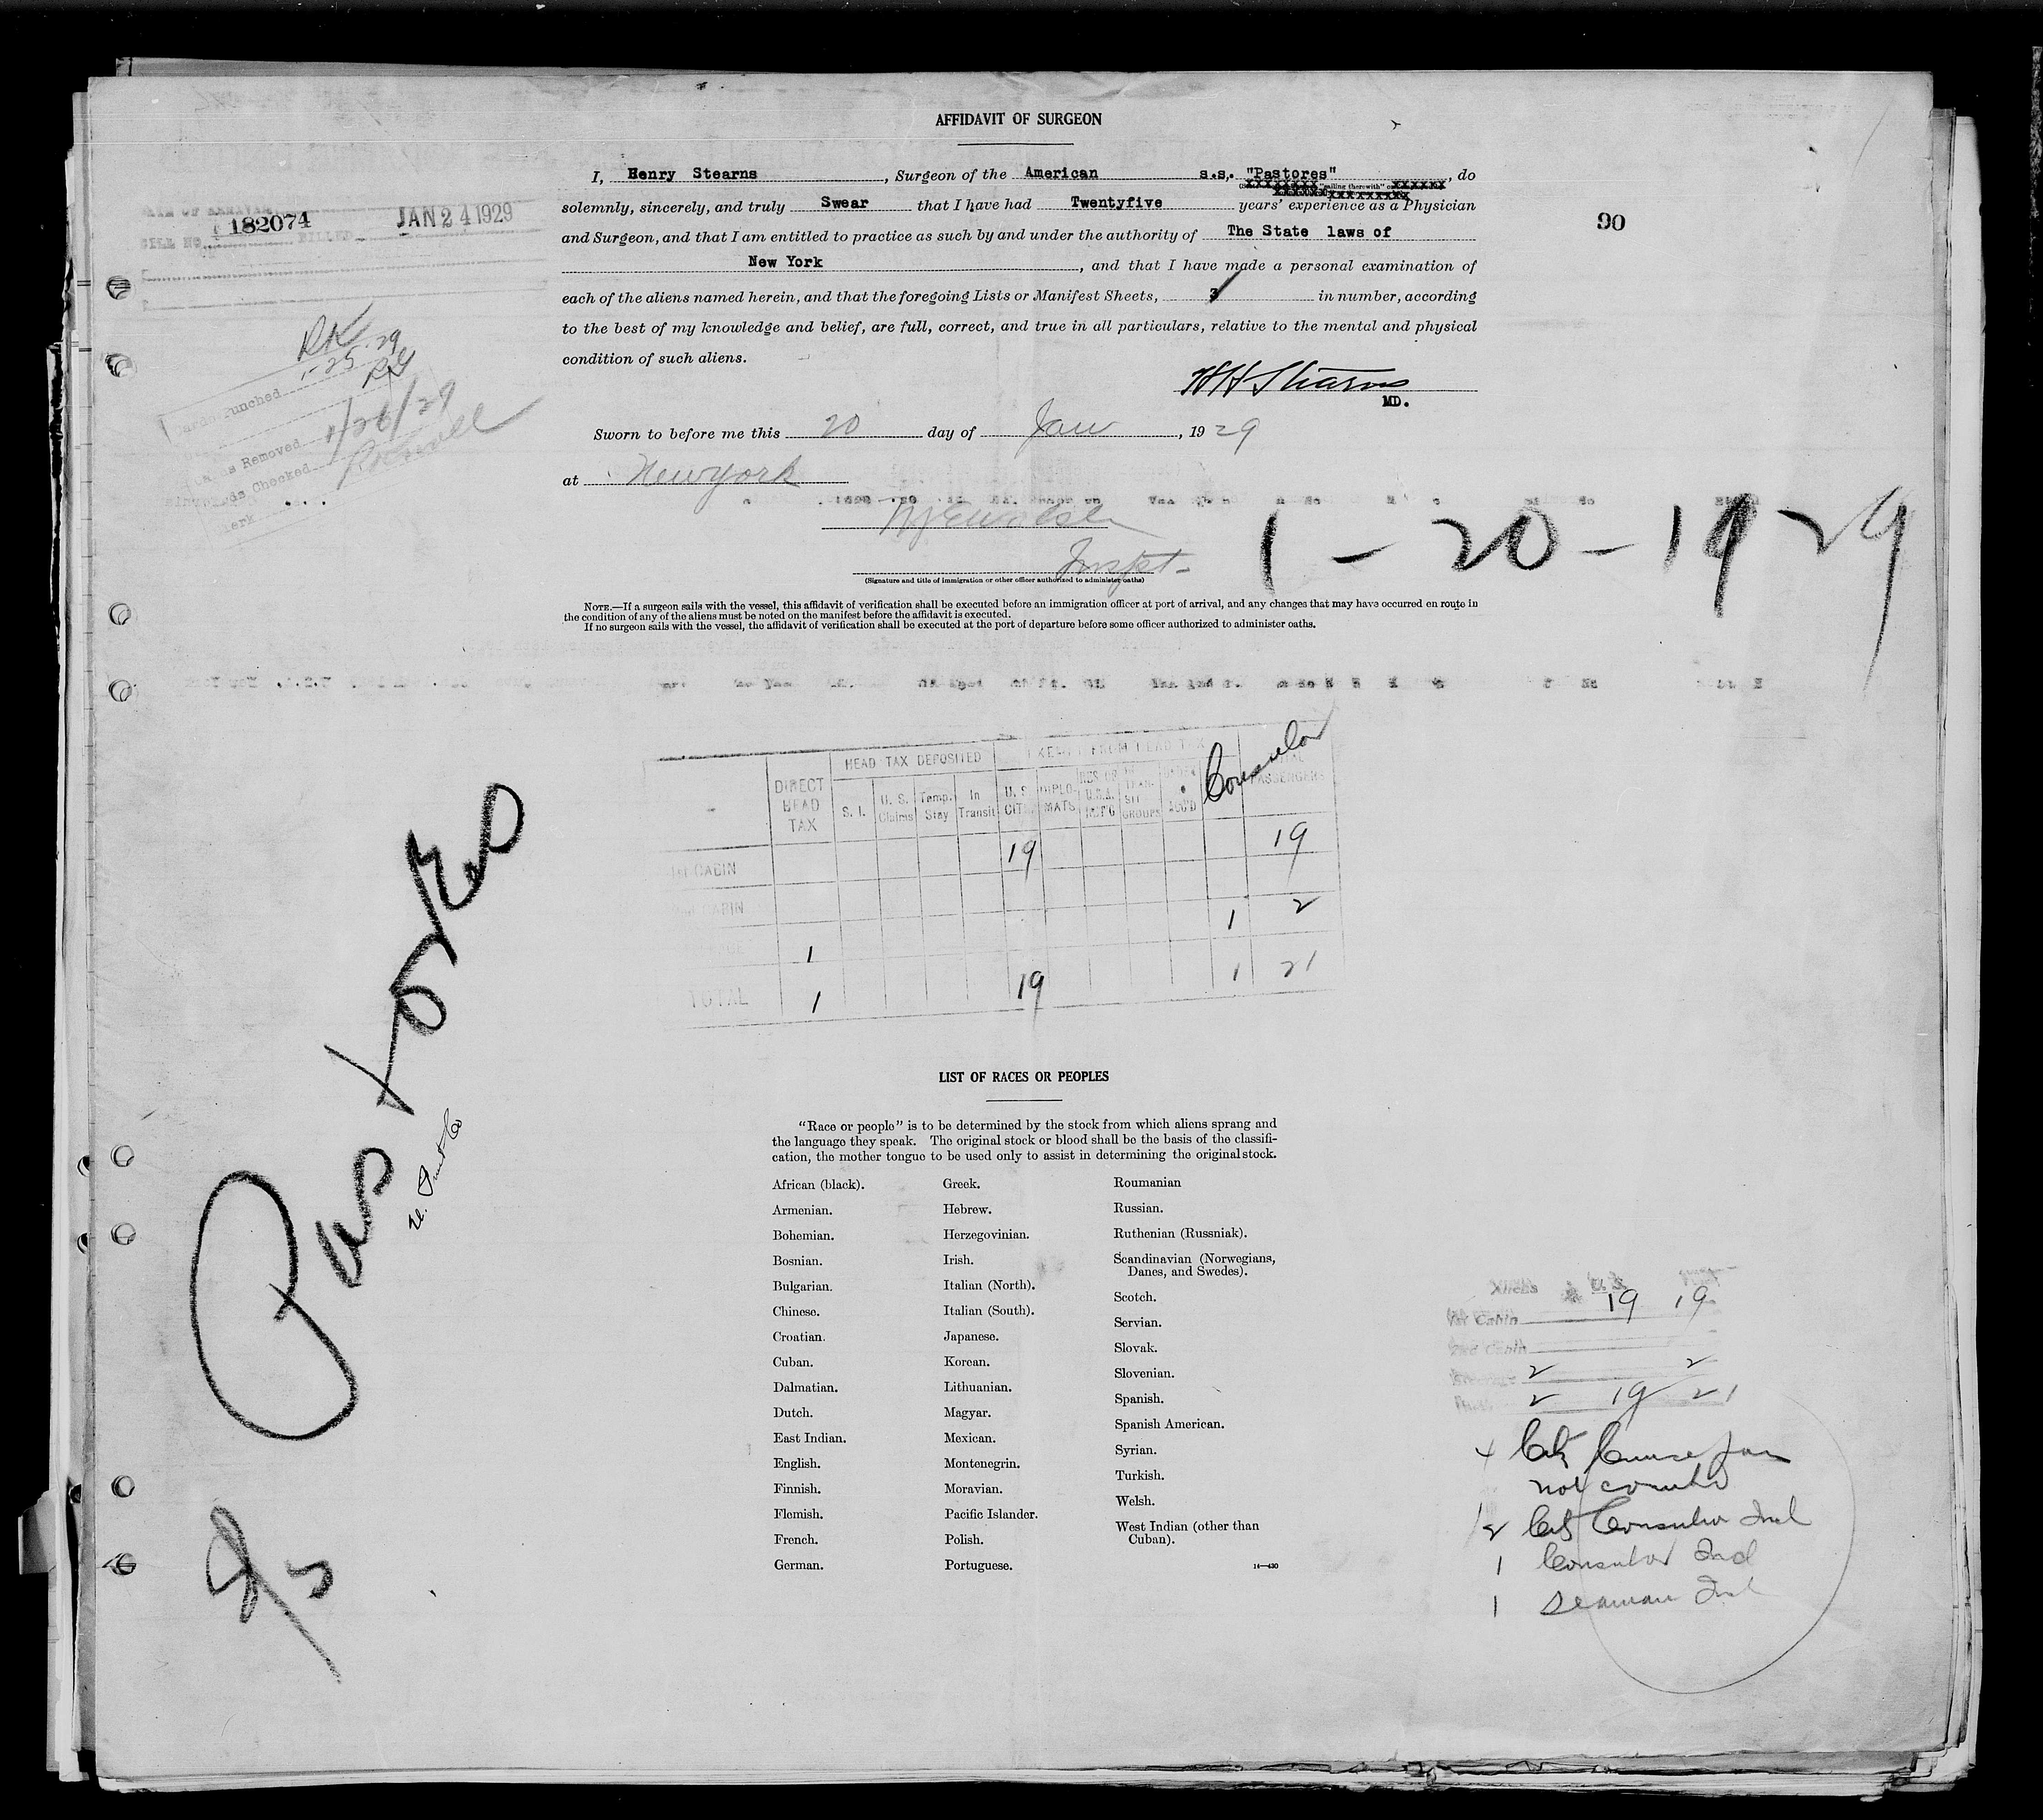 AFFIDAVIT OF SURGEON
I, Henry Stearns, Surgeon of the American s.s. "Pastores", do
solemnly, sincerely, and truly Swear that I have had Twentyfive years' experience as a Physician
and Surgeon, and that I am entitled to practice as such by and under the authority of The State laws of
New York, and that I have made a personal examination of
each of the aliens named herein, and that the foregoing Lists or Manifest Sheets, 3 in number, according
to the best of my knowledge and belief, are full, correct, and true in all particulars, relative to the mental and physical
condition of such aliens.
182074 JAN 24 1929
90
RK
1-25-29
Punched
1/26/29
Removed
Checked
H H Stearns
MD.
Sworn to before me this 20 day of Jan, 1929
at New york
Inspt-
(Signature and title of immigration or other officer authorized to administer oaths)
1-20-1929
NOTE.—If a surgeon sails with the vessel, this affidavit of verification shall be executed before an immigration officer at port of arrival, and any changes that may have occurred en route in
the condition of any of the aliens must be noted on the manifest before the affidavit is executed.
If no surgeon sails with the vessel, the affidavit of verification shall be executed at the port of departure before some officer authorized to administer oaths.
Pastores
HEAD TAX DEPOSITED EXEMPT FROM HEAD TAX
DIRECT HEAD TAX S. I. U. S. Claims Temp. Stay In Transit U. S. CIT. DIPLOMATS TRANSIT GROUPS Consular TOTAL PASSENGERS
1st CABIN 19 19
CABIN
1 1 2
TOTAL 1 19 1 21
LIST OF RACES OR PEOPLES
"Race or people" is to be determined by the stock from which aliens sprang and
the language they speak. The original stock or blood shall be the basis of the classifi-
cation, the mother tongue to be used only to assist in determining the original stock.
African (black).
Armenian.
Bohemian.
Bosnian.
Bulgarian.
Chinese.
Croatian.
Cuban.
Dalmatian.
Dutch.
East Indian.
English.
Finnish.
Flemish.
French.
German.
Greek.
Hebrew.
Herzegovinian.
Irish.
Italian (North).
Italian (South).
Japanese.
Korean.
Lithuanian.
Magyar.
Mexican.
Montenegrin.
Moravian.
Pacific Islander.
Polish.
Portuguese.
Roumanian
Russian.
Ruthenian (Russniak).
Scandinavian (Norwegians,
Danes, and Swedes).
Scotch.
Servian.
Slovak.
Slovenian.
Spanish.
Spanish American.
Syrian.
Turkish.
Welsh.
West Indian (other than
Cuban).
14—430
Aliens U.S.
1st Cabin 19 19
2 2
2 19 21
not counted
1 Consular Incl
1 Seaman Incl